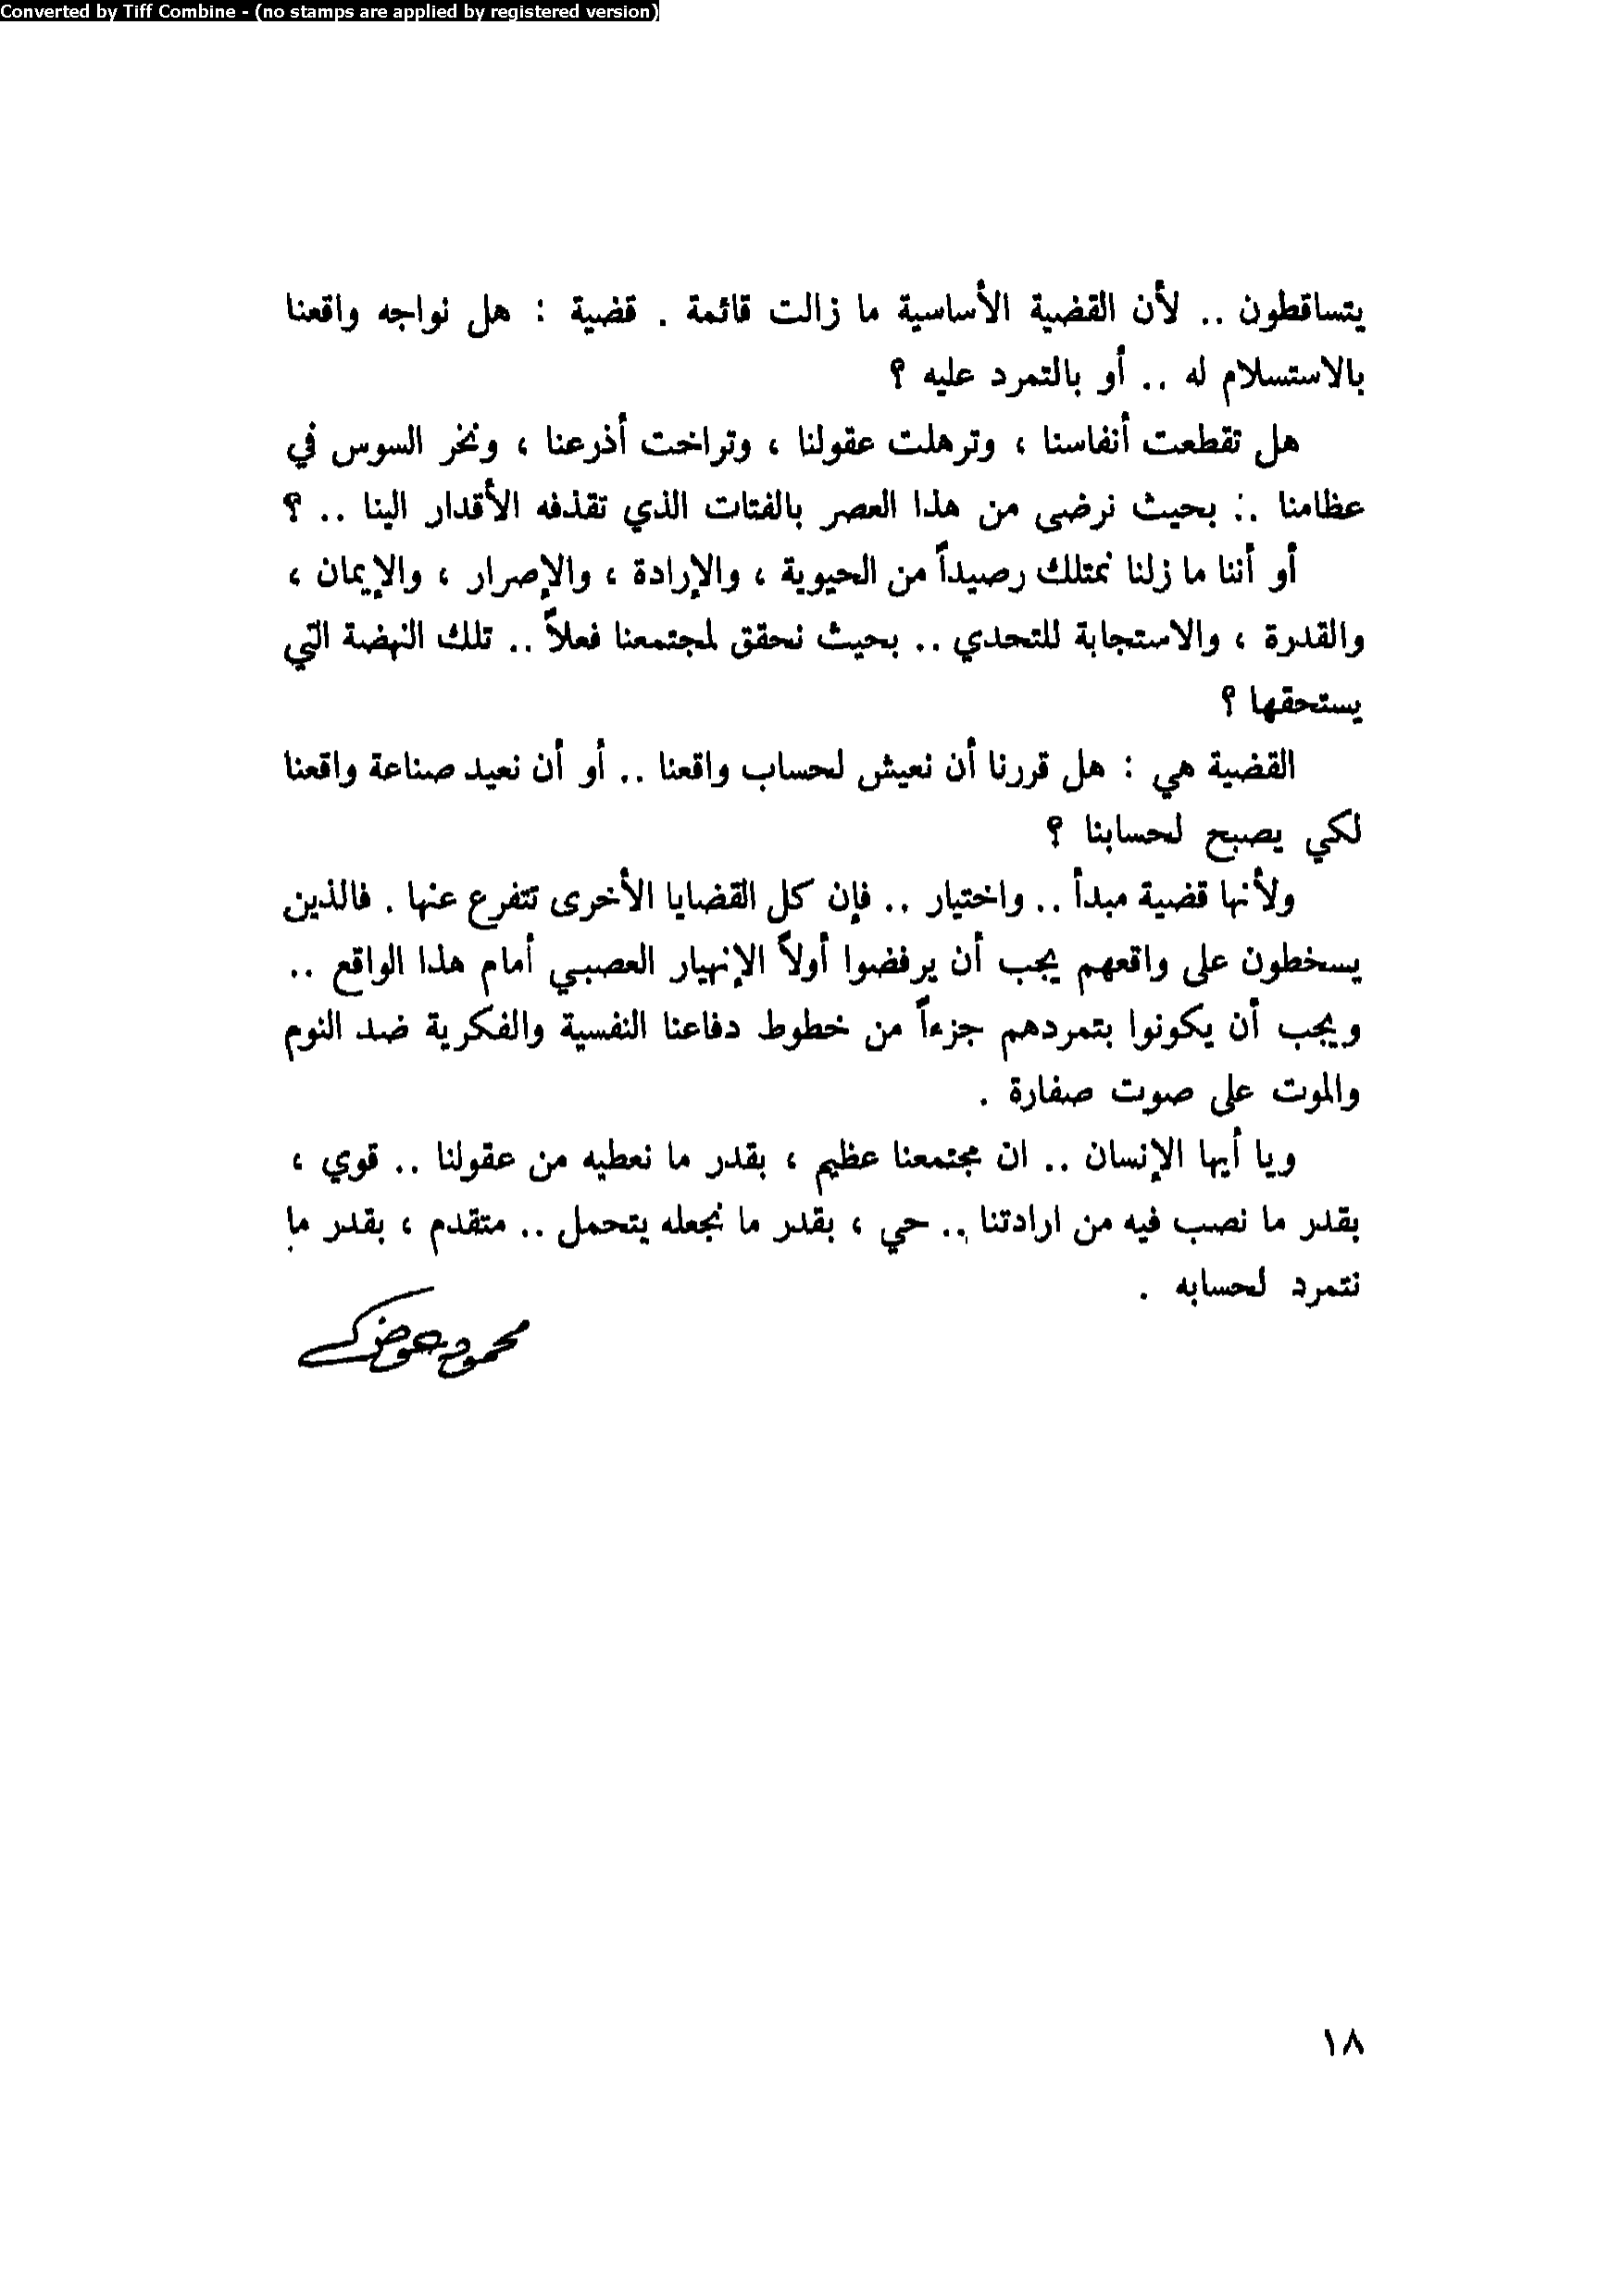 Converted by Tiff Combine - (no stamps are applied by registered version)
يتساقطون .. لأن القضية الأساسية ما زالت قائمة . قضية : هل نواجه واقعنا
بالاستسلام له .. أو بالتمرد عليه ؟
هل تقطعت أنفاسنا ، وترهلت عقولنا ، وتراخت أذرعنا ، ونخر السوس في
عظامنا .. بحيث نرضى من هذا العصر بالفتات الذي تقذفه الأقدار الينا .. ؟
أو أننا ما زلنا نمتلك رصيداً من الحيوية ، والإرادة ، والإصرار ، والإيمان ،
والقدرة ، والاستجابة للتحدي .. بحيث نحقق لمجتمعنا فعلاً .. تلك النهضة التي
يستحقها ؟
القضية هي : هل قررنا أن نعيش لحساب واقعنا .. أو أن نعيد صناعة واقعنا
لكي يصبح لحسابنا ؟
ولأنها قضية مبدأ .. واختيار .. فإن كل القضايا الأخرى تتفرع عنها . فالذين
يسخطون على واقعهم يجب أن يرفضوا أولاً الإنهيار العصبي أمام هذا الواقع ..
ويجب أن يكونوا بتمردهم جزءاً من خطوط دفاعنا النفسية والفكرية ضد النوم
والموت على صوت صفارة .
ويا أيها الإنسان .. ان مجتمعنا عظيم ، بقدر ما نعطيه من عقولنا .. قوي ،
بقدر ما نصب فيه من ارادتنا .. حي ، بقدر ما نجعله يتحمل .. متقدم ، بقدر ما
نتمرد لحسابه .
محمود عوض
١٨